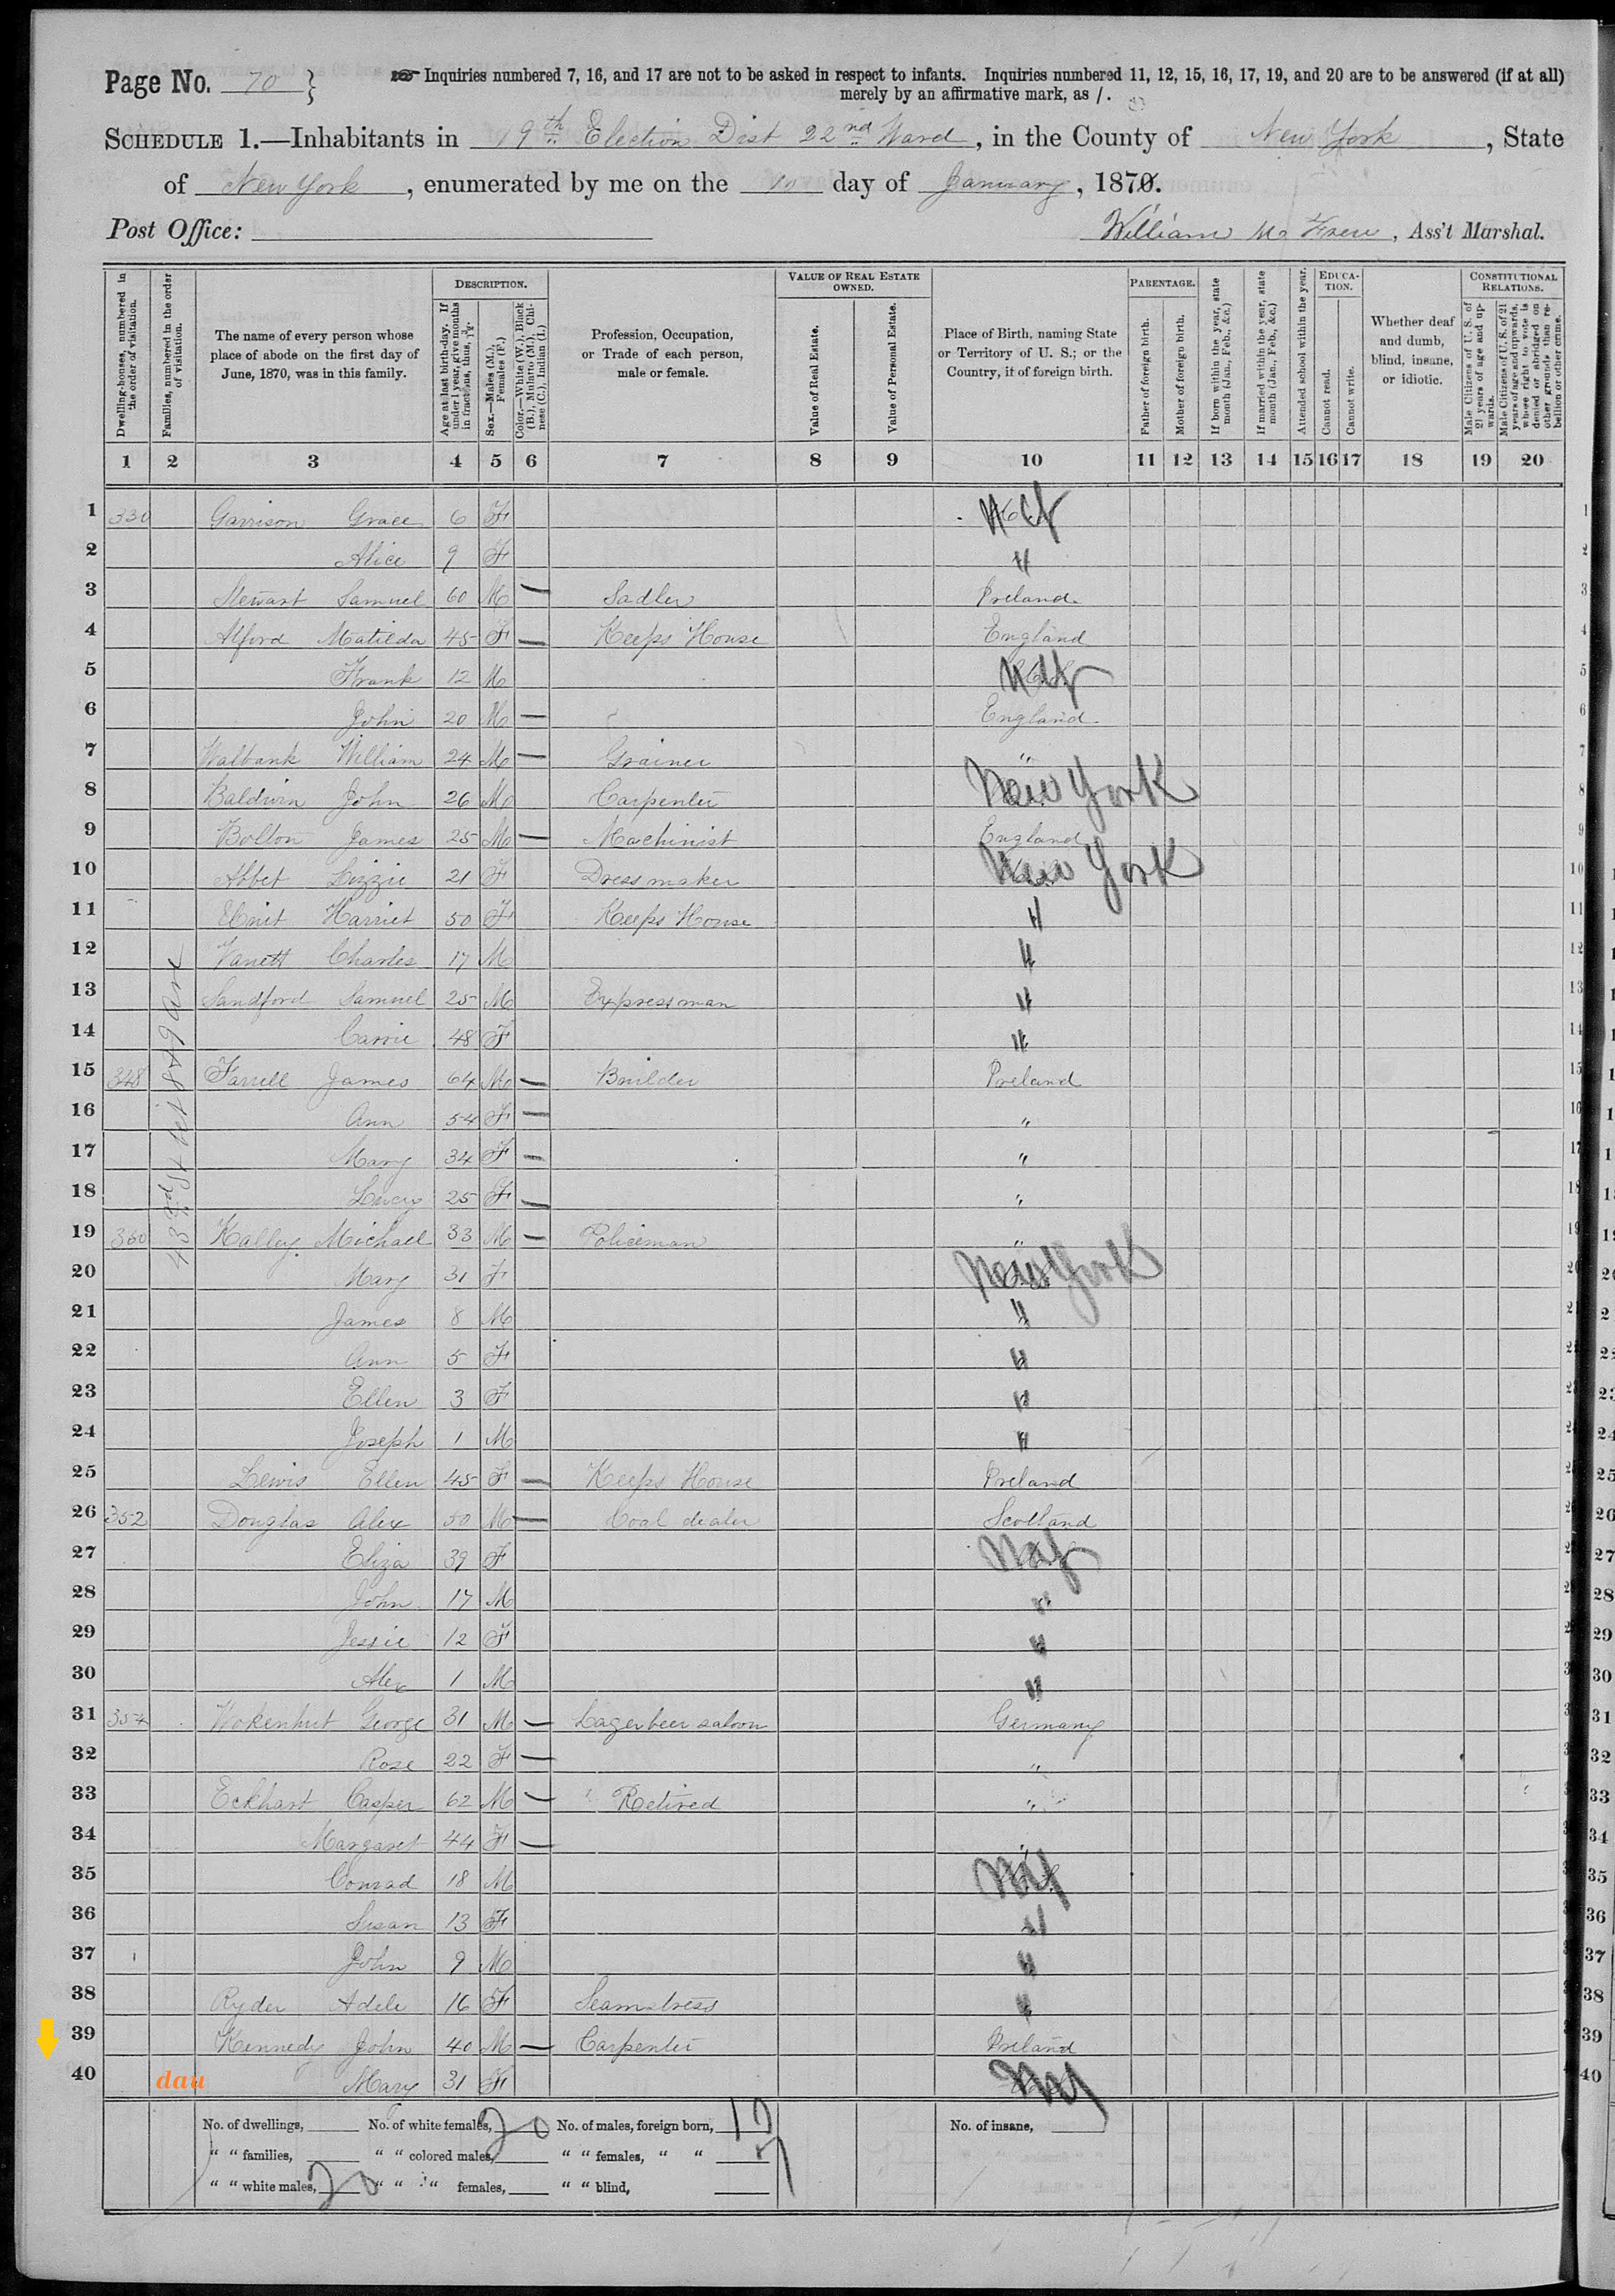 Page No. 70 } Inquiries numbered 7, 16, and 17 are not to be asked in respect to infants. Inquiries numbered 11, 12, 15, 16, 17, 19, and 20 are to be answered (if at all)
merely by an affirmative mark, as /.
SCHEDULE 1.—Inhabitants in 19th Election Dist 22nd Ward, in the County of New York, State
of New York, enumerated by me on the 10 day of January, 1870.
Post Office: William Mc , Ass't Marshal.
Dwelling-houses, numbered in the order of visitation.
Families, numbered in the order of visitation.
The name of every person whose place of abode on the first day of June, 1870, was in this family.
DESCRIPTION.
Age at last birth-day. If under 1 year, give months in fractions, thus, 3/12.
Sex.—Males (M.), Females (F.)
Color.—White (W.), Black (B.), Mulatto (M.), Chinese (C.), Indian (I.)
Profession, Occupation, or Trade of each person, male or female.
VALUE OF REAL ESTATE OWNED.
Value of Real Estate.
Value of Personal Estate.
Place of Birth, naming State or Territory of U. S.; or the Country, if of foreign birth.
PARENTAGE.
Father of foreign birth.
Mother of foreign birth.
If born within the year, state month (Jan., Feb., &c.)
If married within the year, state month (Jan., Feb., &c.)
EDUCATION.
Attended school within the year.
Cannot read.
Cannot write.
Whether deaf and dumb, blind, insane, or idiotic.
CONSTITUTIONAL RELATIONS.
Male Citizens of U. S. of 21 years of age and upwards.
Male Citizens of U. S. of 21 years of age and upwards, whose right to vote is denied or abridged on other grounds than rebellion or other crime.
1 2 3 4 5 6 7 8 9 10 11 12 13 14 15 16 17 18 19 20
1 330 Garrison Grace 6 F
2 Alice 9 F "
3 Stewart Samuel 60 M — Sadler Ireland
4 Alford Matilda 45 F — Keeps House England
5 Frank 12 M
6 John 20 M — England
7 Walbank William 24 M — Grainer "
8 Baldwin John 26 M Carpenter New York
9 Bolton James 25 M — Machinist England
10 Abbet Lizzie 21 F Dress maker New York
11 Harriet 50 F Keeps House "
12 Vanett Charles 17 M "
13 Sandford Samuel 25 M Expressman "
14 Carrie 48 F "
15 348 Farrell James 64 M — Builder Ireland
16 Ann 54 F — "
17 Mary 34 F — "
18 Lucy 25 F — "
43rd St bet 8 & 9 Ave
19 350 Kalley Michael 33 M — Policeman "
20 Mary 31 F New York
21 James 8 M "
22 Ann 5 F "
23 Ellen 3 F "
24 Joseph 1 M "
25 Lewis Ellen 45 F — Keeps House Ireland
26 352 Douglas Alex 50 M — Coal dealer Scotland
27 Eliza 39 F NY
28 John 17 M "
29 Jessie 12 F "
30 Alex 1 M "
31 354 Wokenhut George 31 M — Lager beer saloon Germany
32 Rose 22 F — "
33 Eckhart Casper 62 M — Retired "
34 Margaret 44 F — "
35 Conrad 18 M NY
36 Susan 13 F "
37 John 9 M "
38 Ryder Adele 16 F Seamstress "
39 Kennedy John 40 M — Carpenter Ireland
40 dau Mary 31 F NY
No. of dwellings, No. of white females, 20 No. of males, foreign born, No. of insane,
" " families, " " colored males, " " females, " " 7
" " white males, 20 " " " females, " " blind,